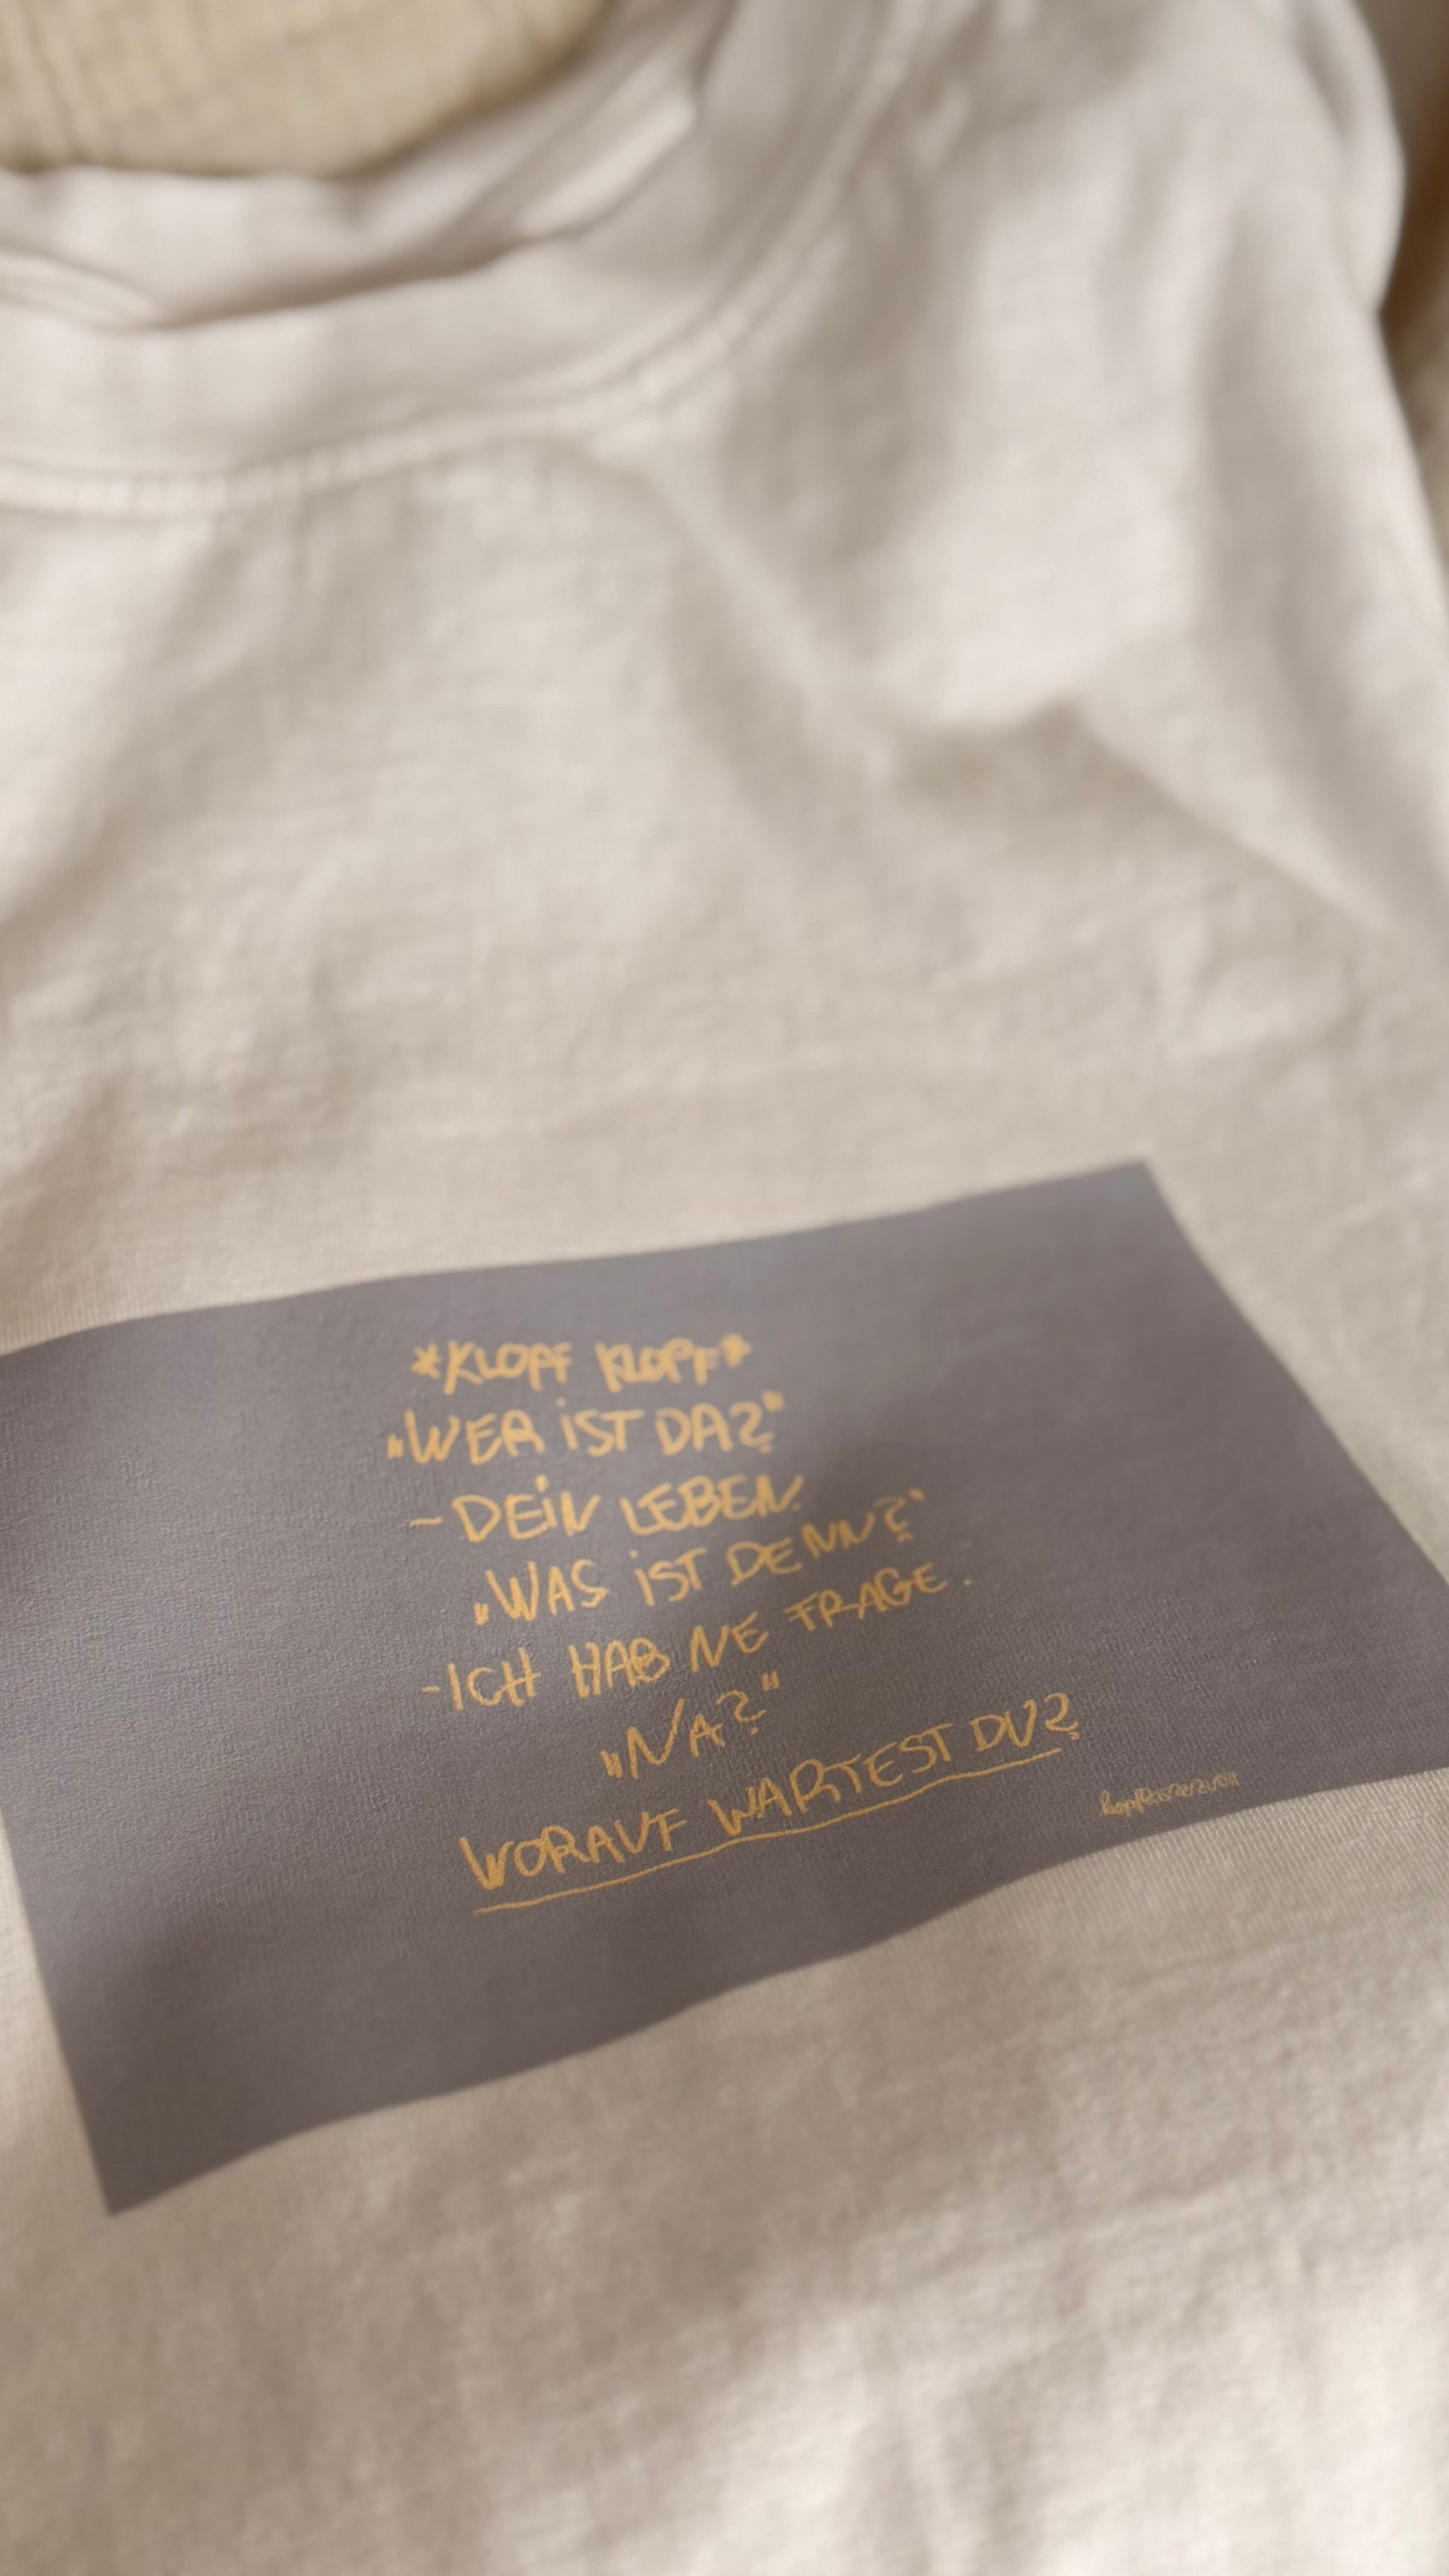 *KLOPF KLOPF*
„WER IST DA?"
- DEIN LEBEN.
„WAS IST DENN?"
- ICH HAB NE FRAGE.
„NA?"
WORAUF WARTEST DU?